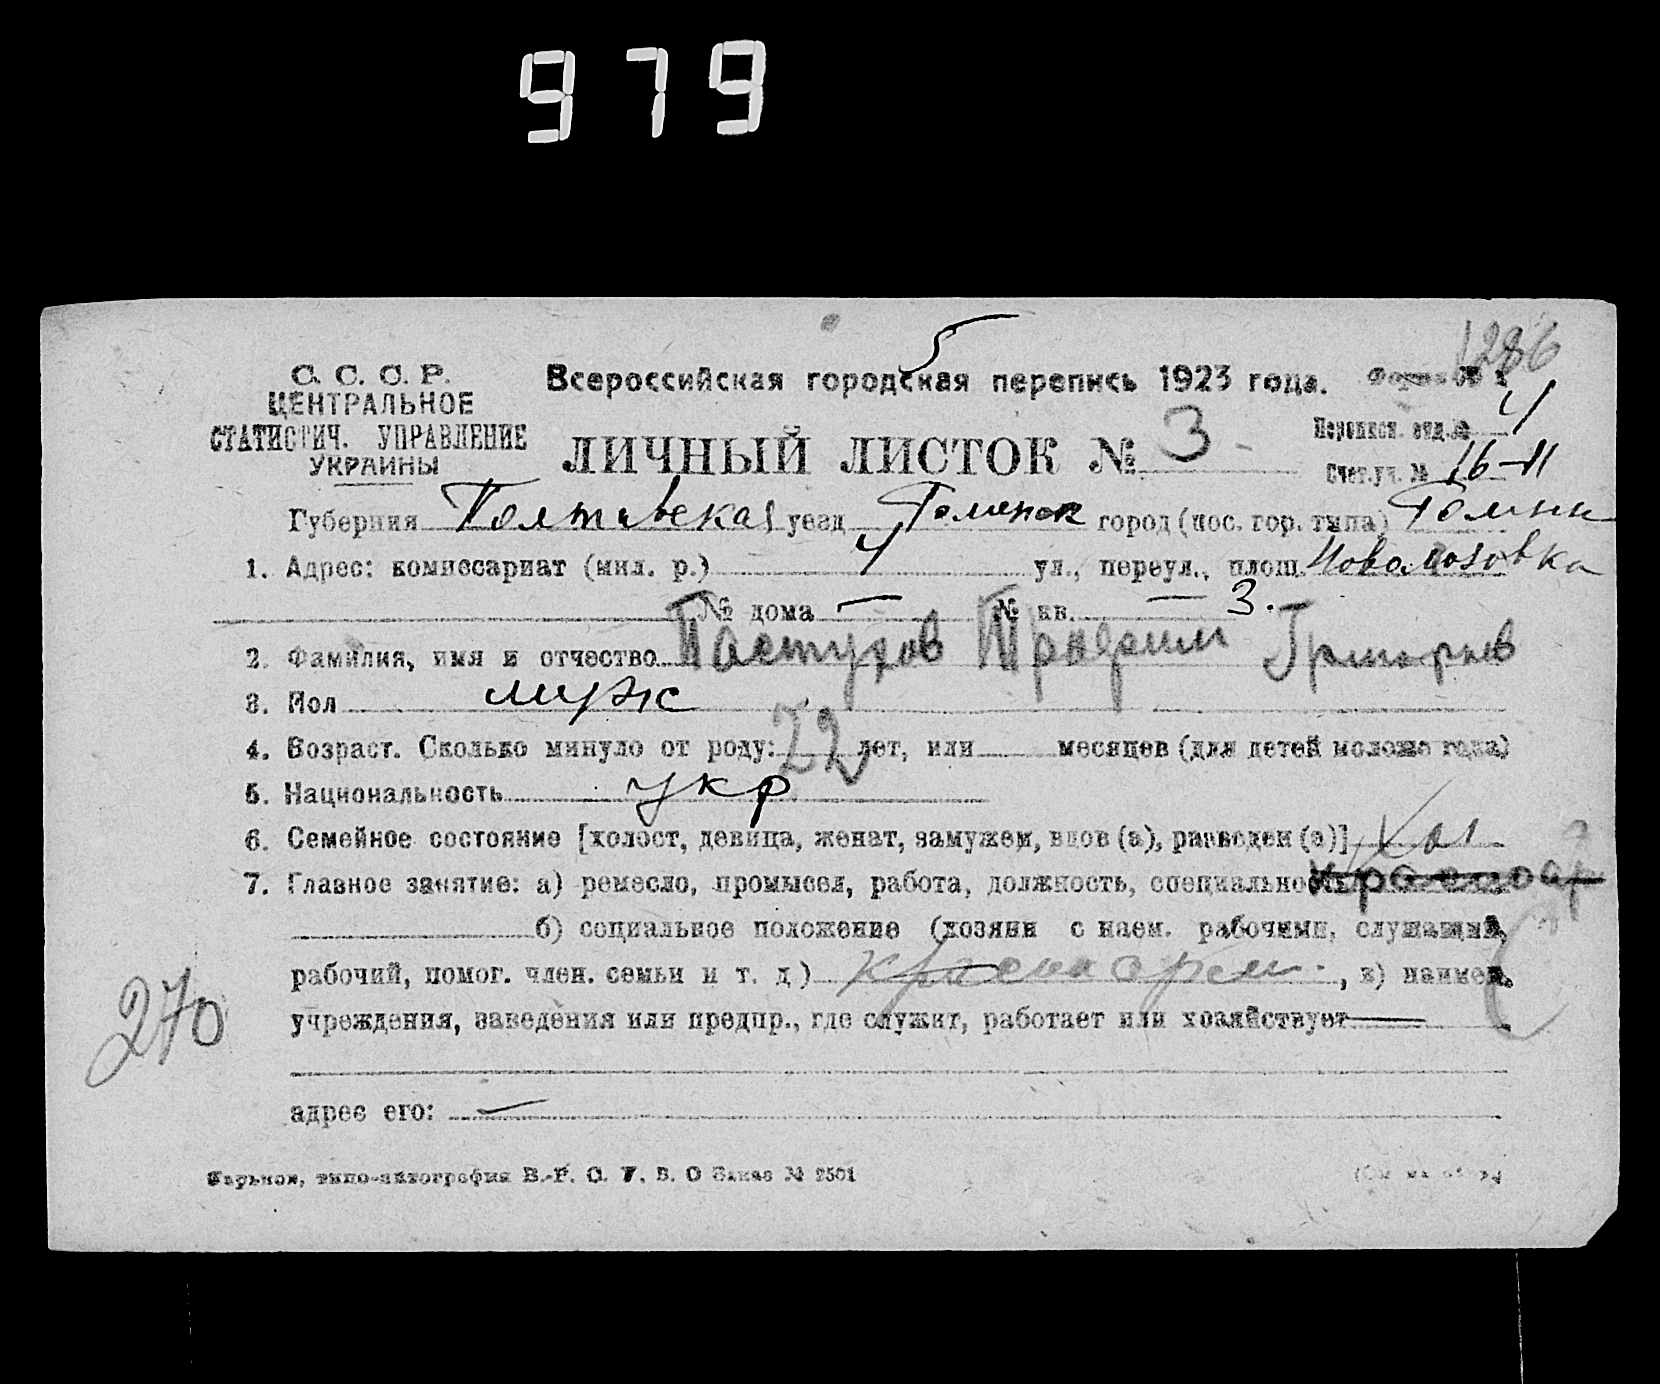 979
1286
5
С. С. С. Р.
ЦЕНТРАЛЬНОЕ
СТАТИСТИЧ. УПРАВЛЕНИЕ
УКРАИНЫ
Всероссийская городская перепись 1923 года.
ЛИЧНЫЙ ЛИСТОК № 3
Переписн. отд. № 4
Счет.уч. № 16-11
Губерния Полтавская уезд Роменск город (пос. гор. типа) Ромны
1. Адрес: комиссариат (мил. р.) 4 ул., переул., площ.
№ дома — № кв. — 3.
2. Фамилия, имя и отчество Пастухов Трофим Григорьев
3. Пол муж
4. Возраст. Сколько минуло от роду: 22 лет, или месяцев (для детей моложе года)
5. Национальность укр
6. Семейное состояние [холост, девица, женат, замужем, вдов (а), разведен (а)] хол
7. Главное занятие: а) ремесло, промысел, работа, должность, специальность
б) социальное положение (хозяин с наем. рабочими, служащий,
рабочий, помог. член. семьи и т. д.) красноарм., в) наимен.
учреждения, заведения или предпр., где служит, работает или хозяйствует —
адрес его: —
270
Харьков, типо-литография В.-Р. С. У. В. О Заказ № 2501